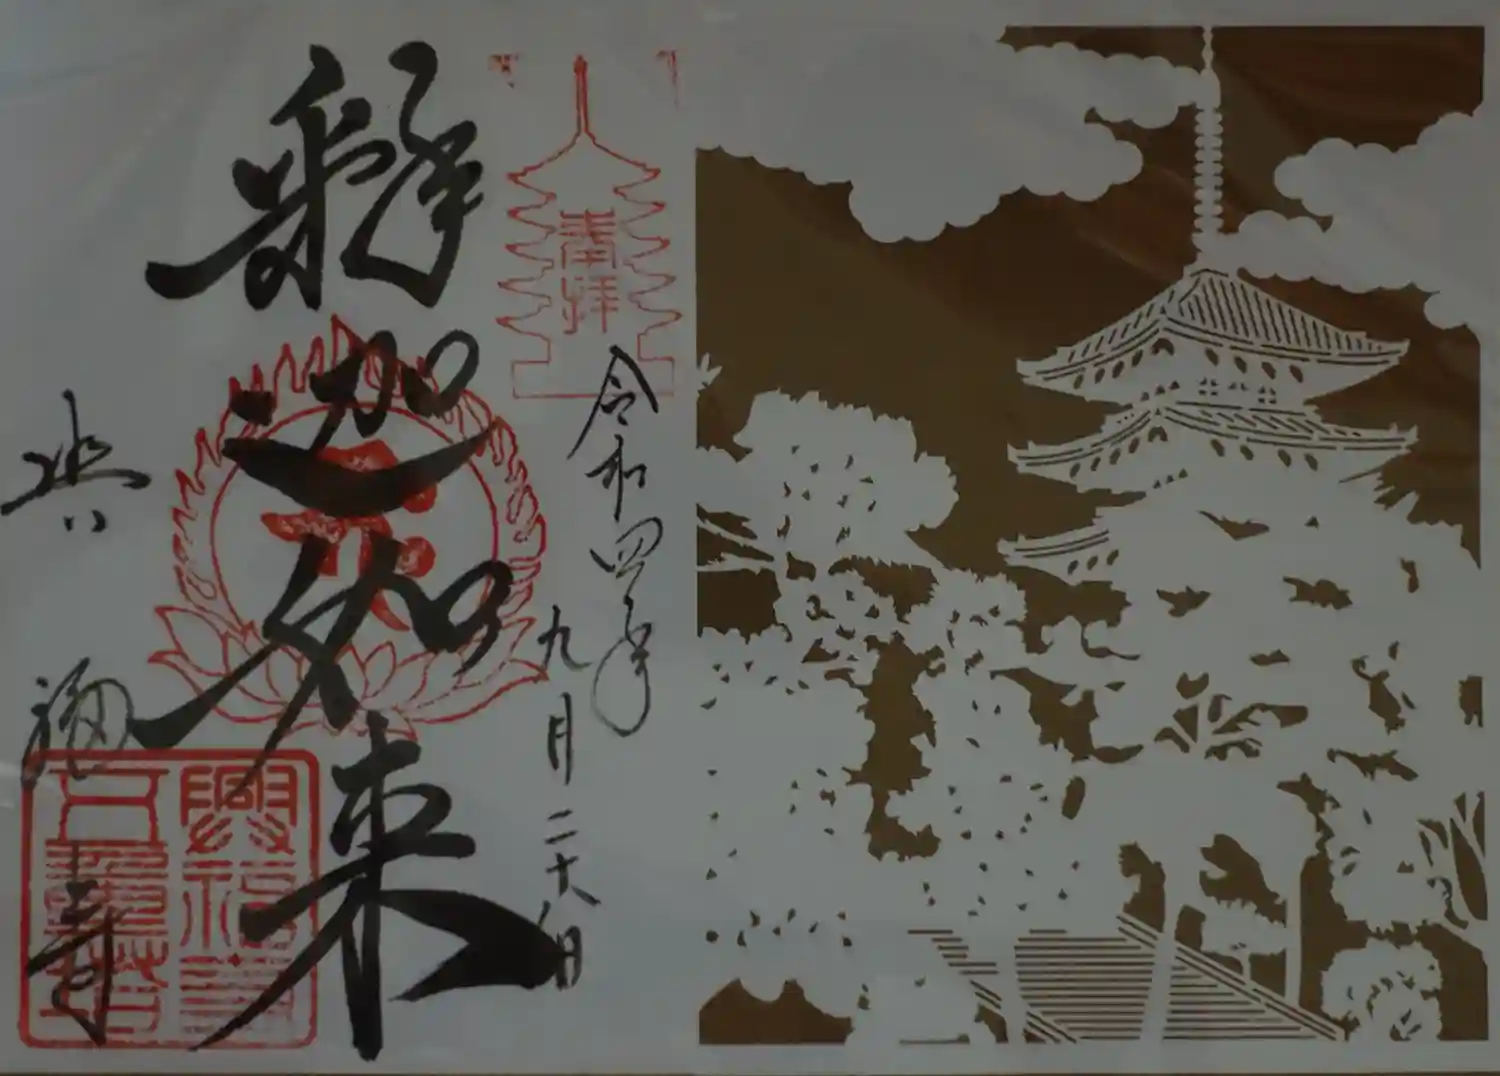 奉拝
令和四年
九月二十八日
釋迦如来
興福寺
興福寺